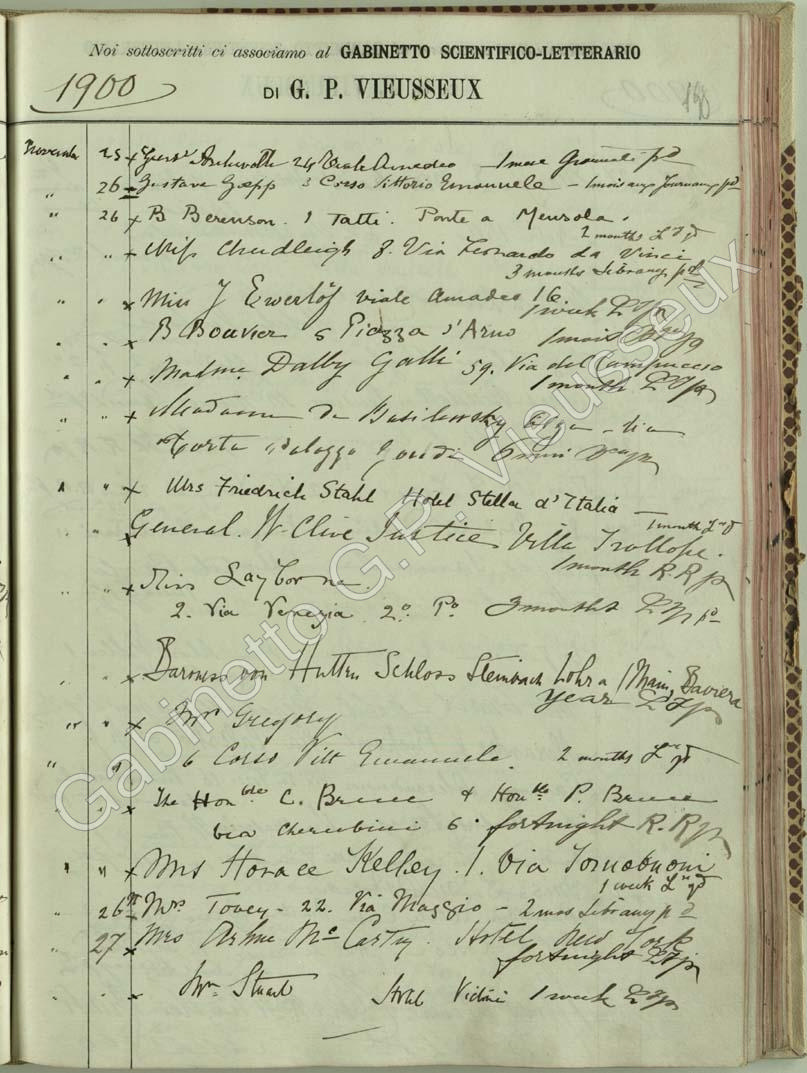 Noi sottoscritti ci associamo al GABINETTO SCIENTIFICO-LETTERARIO
DI G. P. VIEUSSEUX
1900
190
Novembre 25 x 24 Viale Amedeo 1 mese Giornali pd
" 26 x Gustave Goepp 3 Corso Vittorio Emanuele – 1 mois aux Journaux pd
" 26 x B Berenson. I Tatti. Ponte a Mensola.
2 months
" " x Miss Chudleigh 8. Via Leonardo da Vinci
3 months Library pd
" " x Miss J Ewerlöf viale Amadeo 16
1 week
" " x B Bouvier 5 Piazza d'Arno 1 mois
" " x Madme Dalby Galli 59. Via del Campuccio
1 month
" " x Madame de Basilewsky Olga Via
Porta palazzo
" " x Mrs Friedrich Stahl Hotel Stella d'Italia —
1 month
" x General. W. Clive Justice Villa Trollope.
1 month R. R p
" " x Miss Layborne.
2. Via Venezia 2o. Po. 3 months pd
" " x Baroness von Hutten Schloss Steinbach Lohr a/Main, Baviera
year
" " x Mrs Gregory
" " 6 Corso Vitt Emanuele. 2 months
" " x The Honble C. Bruce & Honble P. Bruce
via Cherubini 6. fortnight R. R p
" " x Mrs Horace Kelley. 1. Via Tornabuoni
1 week
" 26 x Mrs Tovey – 22. Via Maggio – 2 mos Library pd
27 x Mrs Mc Carty. Hotel New York
fortnight
" " x Stuart Hotel 1 week
Gabinetto G.P. Vieusseux